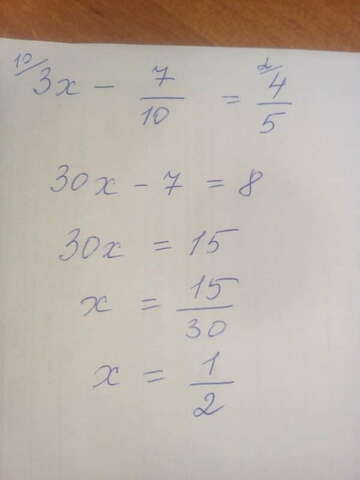 10/ 3x - 7/10 = 2/ 4/5
30x - 7 = 8
30x = 15
x = 15/30
x = 1/2